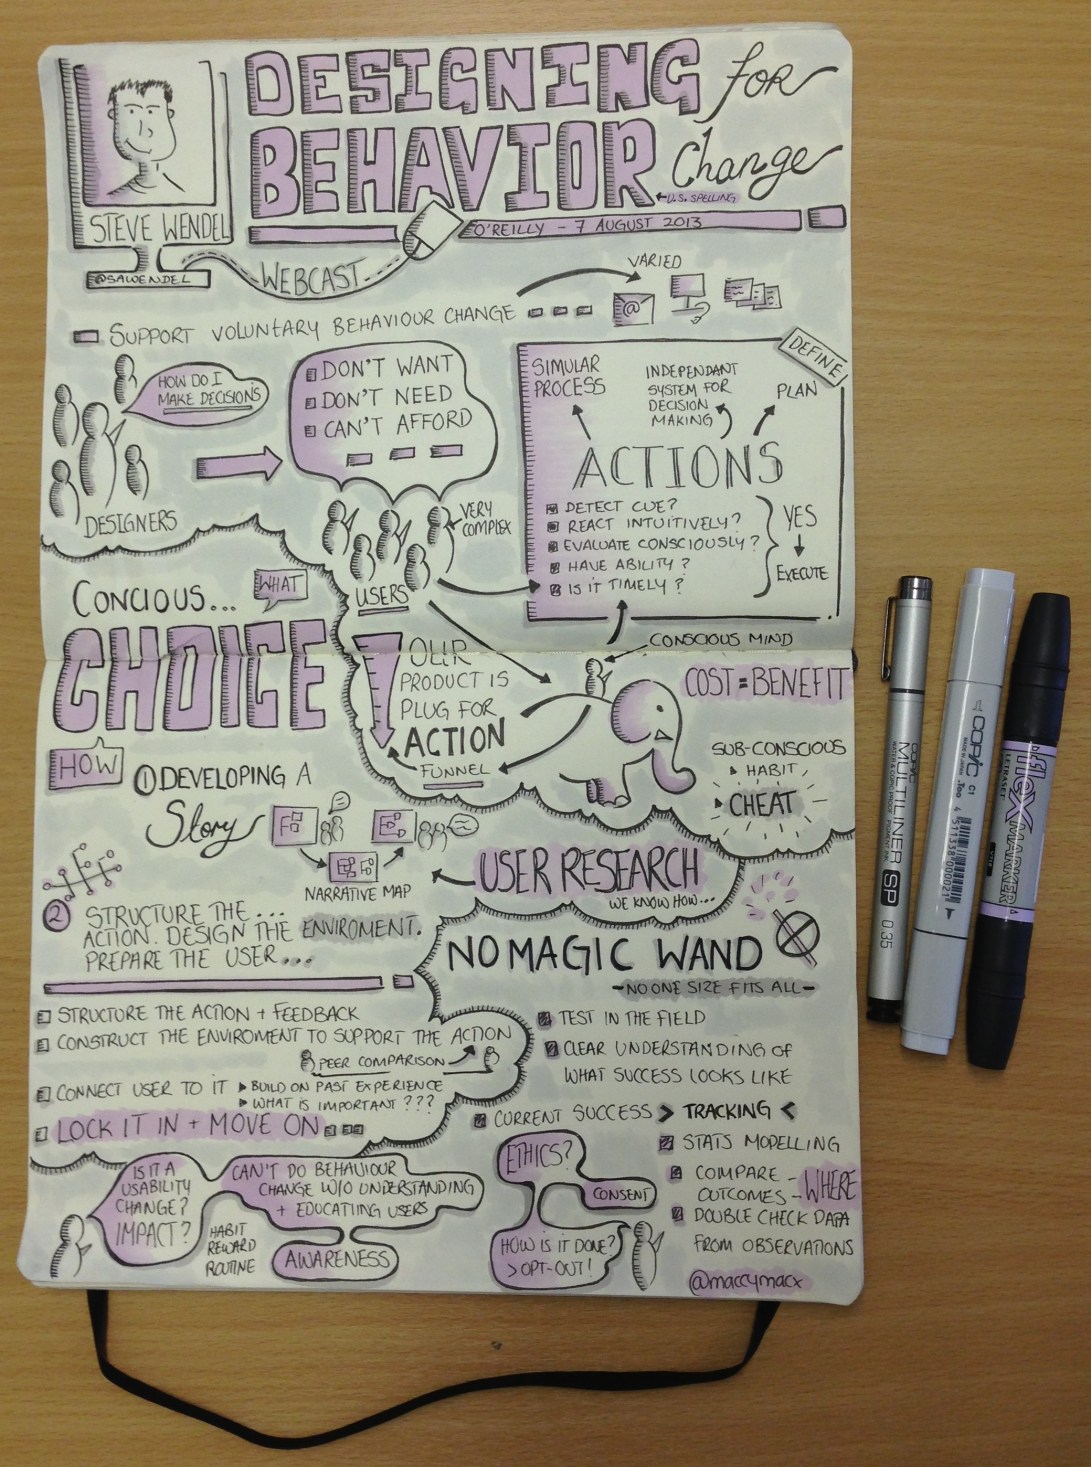 DESIGNING for
BEHAVIOR Change
← U.S. SPELLING
O'REILLY - 7 AUGUST 2013
STEVE WENDEL
@SAWENDEL
WEBCAST
VARIED
SUPPORT VOLUNTARY BEHAVIOUR CHANGE
@
HOW DO I
MAKE DECISIONS
DESIGNERS
DON'T WANT
DON'T NEED
CAN'T AFFORD
VERY
COMPLEX
USERS
DEFINE
SIMULAR
PROCESS
INDEPENDANT
SYSTEM FOR
DECISION
MAKING
PLAN
ACTIONS
DETECT CUE?
REACT INTUITIVELY?
EVALUATE CONSCIOUSLY?
HAVE ABILITY?
IS IT TIMELY?
YES
EXECUTE
CONCIOUS...
WHAT
CHOICE
HOW
OUR
PRODUCT IS
PLUG FOR
ACTION
FUNNEL
CONSCIOUS MIND
COST = BENEFIT
SUB-CONSCIOUS
HABIT
CHEAT
1 DEVELOPING A
Story
NARRATIVE MAP
USER RESEARCH
WE KNOW HOW...
2 STRUCTURE THE...
ACTION. DESIGN THE ENVIROMENT.
PREPARE THE USER...
STRUCTURE THE ACTION + FEEDBACK
CONSTRUCT THE ENVIROMENT TO SUPPORT THE ACTION
PEER COMPARISON
CONNECT USER TO IT
BUILD ON PAST EXPERIENCE
WHAT IS IMPORTANT???
LOCK IT IN + MOVE ON
NO MAGIC WAND
-NO ONE SIZE FITS ALL-
TEST IN THE FIELD
CLEAR UNDERSTANDING OF
WHAT SUCCESS LOOKS LIKE
CURRENT SUCCESS > TRACKING <
STATS MODELLING
COMPARE - WHERE
OUTCOMES -
DOUBLE CHECK DATA
FROM OBSERVATIONS
IS IT A
USABILITY
CHANGE?
IMPACT?
CAN'T DO BEHAVIOUR
CHANGE W/O UNDERSTANDING
+ EDUCATIING USERS
HABIT
REWARD
ROUTINE
AWARENESS
ETHICS?
CONSENT
HOW IS IT DONE?
> OPT-OUT!
@maccymacx
COPIC
MULTILINER SP 0.35
COPIC
C1
flexMARKER
LETRASET